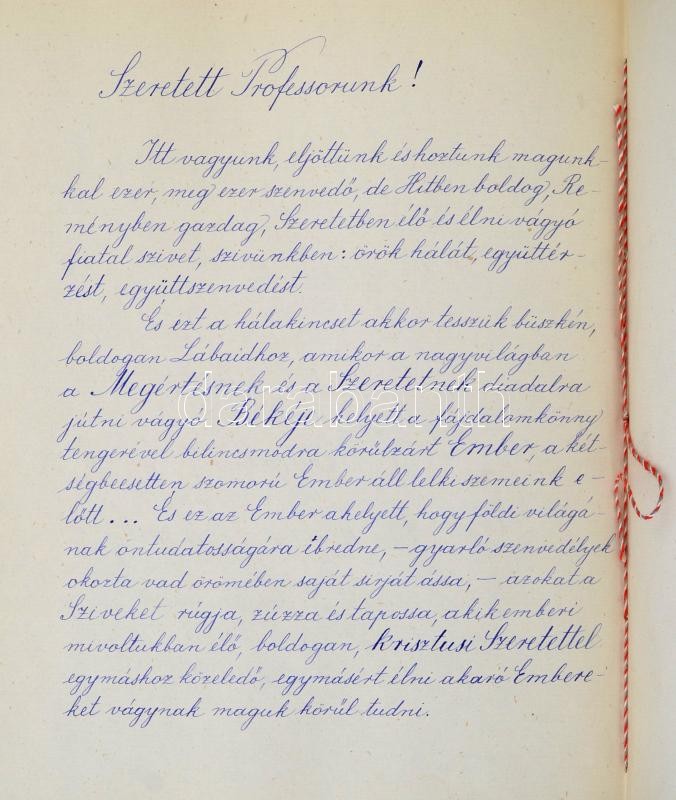 Szeretett Professorunk!
Itt vagyunk, eljöttünk és hoztunk magunk-
kal ezer, meg ezer szenvedő, de Hitben boldog, Re-
ményben gazdag, Szeretetben élő és élni vágyó
fiatal szivet, szivünkben: örök hálát, együttér-
zést, együttszenvedést.
És ezt a hálakincset akkor tesszük büszkén,
boldogan Lábaidhoz, amikor a nagyvilágban
a Megértésnek és a Szeretetnek diadalra
jutni vágyó Békéje helyett a fájdalomkönny
tengerével bilincsmódra körülzárt Ember, a két-
ségbeesetten szomorú Ember áll lelki szemeink e-
lőtt... És ez az Ember ahelyett, hogy földi világá-
nak öntudatosságára ébredne, – gyarló szenvedélyek
okozta vad örömében saját sirját ássa, – azokat a
Sziveket rúgja, zúzza és tapossa, akik emberi
mivoltukban élő, boldogan, Krisztusi Szeretettel
egymáshoz közeledő, egymásért élni akaró Embere-
ket vágynak maguk körül tudni.
darabanth